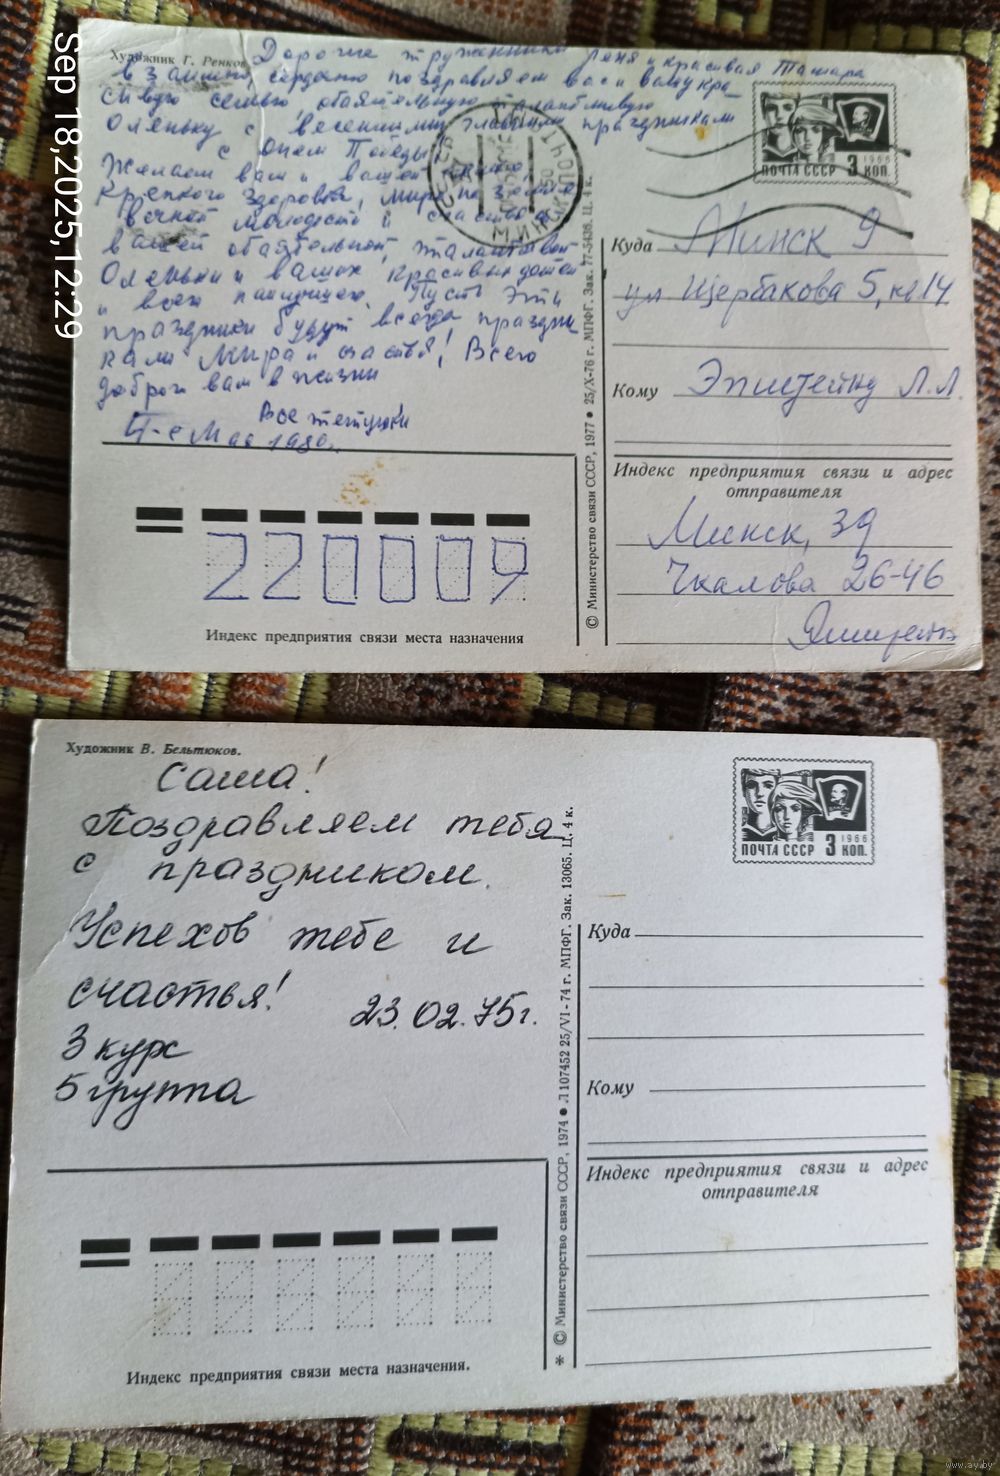 Sep 18,2025,12:29
Художник Г. Ренков
Дорогие труженники Леня и красивая Тамара
взаимно, сердечно поздравляем вас и вашу кра_
сивую семью обаятельную талантливую
Оленьку с весенними главными праздниками
с днем Победы
Желаем вам и вашей
Крепкого здоровья, мира
вечной молодости и счастья
вашей обаятельной, талантливой
Оленьки и ваших красивых детей
и всех Пусть эти
праздники будут всегда праздни
ками Мира и счастья! Всего
доброго вам в жизни
Все тетушки
Мая 1980г.
МИНСК ПОЧТ
ПОЧТА СССР 3 КОП.
1966
Куда Минск 9
ул Щербакова 5, кв 14
Кому Эпштейну Л.Л.
Индекс предприятия связи и адрес
отправителя
Минск, 39
Чкалова 26-46
220009
Индекс предприятия связи места назначения
© Министерство связи СССР, 1977 ● 25/X-76 г. МПФГ. Зак. 77-5438. Ц. 4 к.
Художник В. Бельтюков.
Саша!
Поздравляем тебя
с праздником.
Успехов тебе и
счастья!
23.02.75г.
3 курс
5 группа
ПОЧТА СССР 3 КОП.
1966
Куда
Кому
Индекс предприятия связи и адрес
отправителя
Индекс предприятия связи места назначения.
* © Министерство связи СССР, 1974 ● Л 107452 25/VI-74 г. МПФГ. Зак. 13065. Ц. 4 к.
www.ay.by